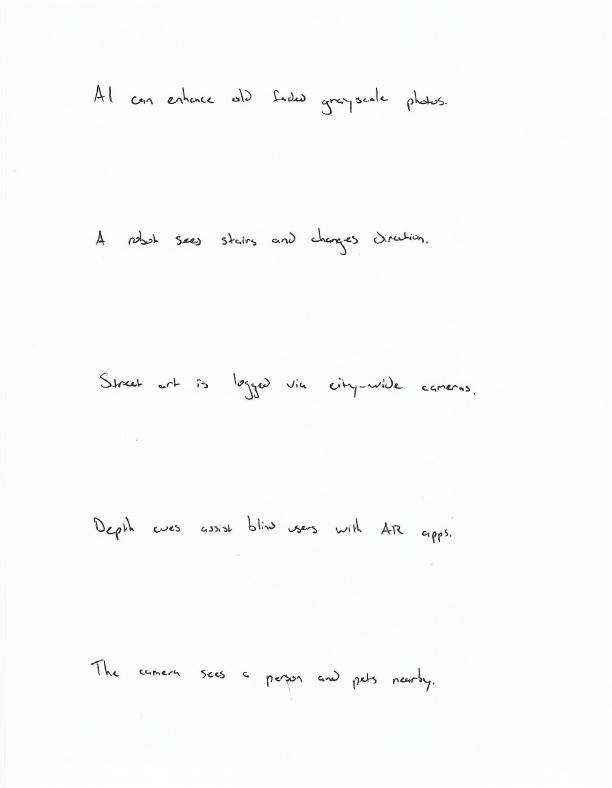 AI can enhance old faded grayscale photos.
A robot sees stairs and changes direction.
Street art is logged via city-wide cameras.
Depth cues assist blind users with AR apps.
The camera sees a person and pets nearby.